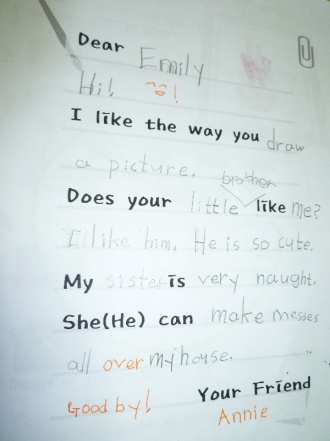 Dear Emily
Hi!
I like the way you draw
a picture.
brother
Does your little like me?
I like him. He is so cute.
My sister is very naught.
She(He) can make messes
all over my house.
Good by!
Your Friend
Annie